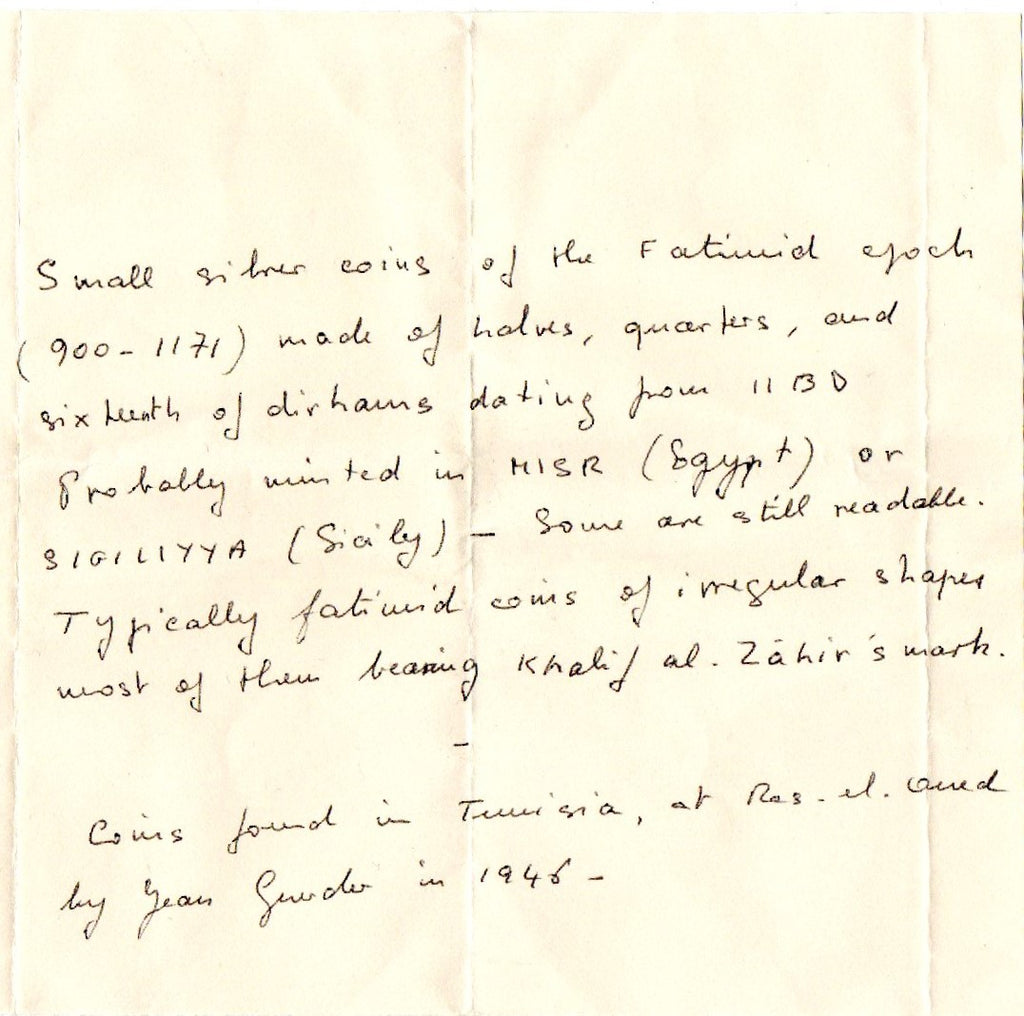 Small silver coins of the Fatimid epoch
(900-1171) made of halves, quarters, and
sixteenth of dirhams dating from 11 BD
Probably minted in MISR (Egypt) or
SIGILIYYA (Sicily) - Some are still readable.
Typically fatimid coins of irregular shapes
most of them bearing Khalif al. Zāhir's mark.
-
Coins found in Tunisia, at Ras. el. Oued
by Jean in 1946 -